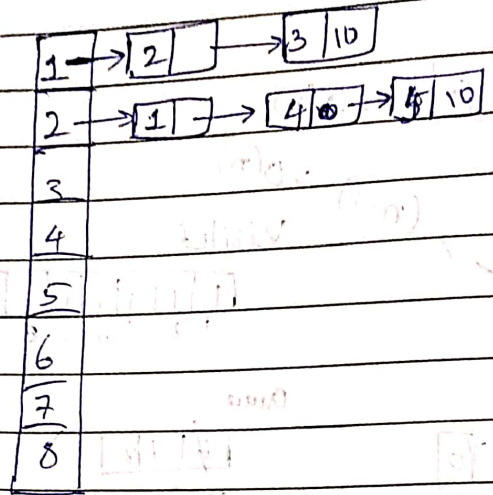 1 2 3 10
2 1 4 5 10
3
4
5
6
7
8